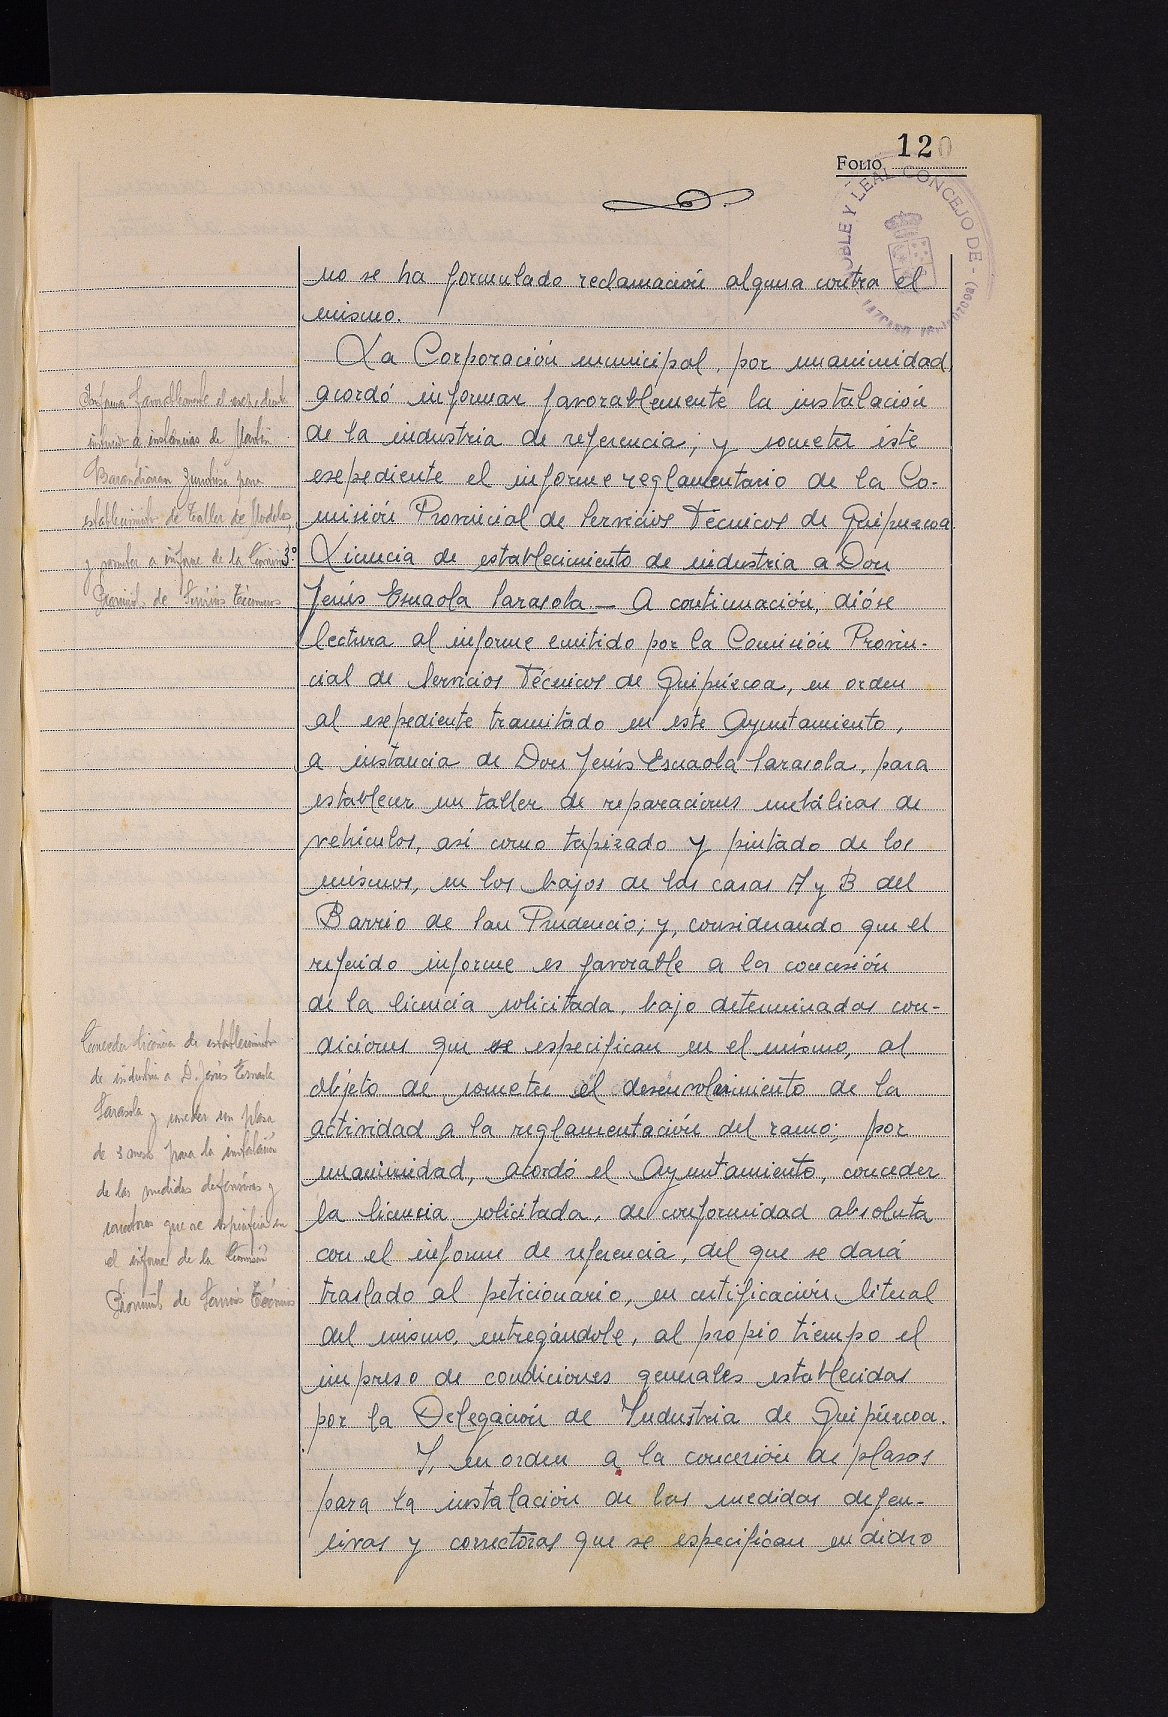 FOLIO 120
NOBLE Y LEAL CONCEJO DE -
no se ha formulado reclamación alguna contra el
mismo.
La Corporación municipal, por unanimidad
acordó informar favorablemente la instalación
de la industria de referencia; y someter éste
esepediente el informe reglamentario de la Co-
misión Provincial de Servicios Técnicos de Guipuzcoa
3º Licencia de establecimiento de industria a Don
Jesús Esnaola Sarasola — A continuación, dióse
lectura al informe emitido por la Comisión Provin-
cial de Servicios Técnicos de Guipúzcoa, en orden
al esepediente tramitado en este Ayuntamiento,
a instancia de Don Jesús Esnaola Sarasola, para
establecer un taller de reparaciones metálicas de
vehículos, así como tapizado y pintado de los
mismos, en los bajos de las casas A y B del
Barrio de San Prudencio; y, considerando que el
referido informe es favorable a la concesión
de la licencia solicitada, bajo determinadas con-
diciones que se especifican en el mismo, al
objeto de someter el desenvolvimiento de la
actividad a la reglamentación del ramo; por
unanimidad, acordó el Ayuntamiento, conceder
la licencia solicitada, de conformidad absoluta
con el informe de referencia, del que se dará
traslado al peticionario, en certificación literal
del mismo, entregándole, al propio tiempo el
impreso de condiciones generales establecidas
por la Delegación de Industria de Guipúzcoa.
Y, en orden a la concesión de plasos
para la instalación de las medidas defen-
sivas y correctoras que se especifican en dicho
Informa favorablemente el expediente
a instancias de Martín
Barandiaran para
establecimiento de Taller de Modelos,
y someter a informe de la Comisión
Provincial de Servicios Técnicos
Conceder licencia de establecimiento
de industria a D. Jesús Esnaola
Sarasola y conceder un plazo
de 3 meses para la instalación
de las medidas defensivas y
correctoras que se especifican en
el informe de la Comisión
Provincial de Servicios Técnicos